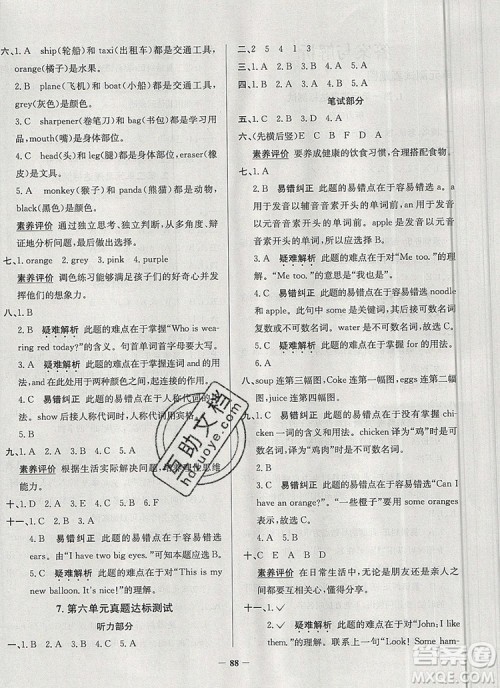 六、1. A　ship(轮船)和 taxi(出租车)都是交通工具,
orange(橘子)是水果。
2. B　plane(飞机)和 boat(小船)都是交通工具,
grey(灰色)是颜色。
3. C　sharpener(卷笔刀)和 bag(书包)都是学习用
品,mouth(嘴)是身体部位。
4. C　head(头)和 leg(腿)都是身体部位,eraser(橡
皮)是文具。
5. A　monkey(猴子)和 panda(熊猫)都是动物,
black(黑色的)是颜色。
素养评价　通过独立思考、独立判断,从多方面、辩
证地分析题目,找出答案。
七、1. orange　2. grey　3. pink　4. purple
素养评价　调色练习能够满足孩子们的好奇心并发
挥他们的想象力。
八、1. C　疑难解析　此题的难点在于掌握“Who is wea-
ring red today?”的含义。句首单词首字母要大写。
2. B　疑难解析　此题的难点在于掌握连词 and 的用
法,and 在此处用于两种颜色并列,意为“和”。
3. C　易错纠正　此题的易错点在于人称代词的用
法,show 后接人称代词时,人称代词用宾格。
4. B　5. A
九、1. C　2. A　3. D　4. B
素养评价　根据生活实际解决问题,
能力。
十、1. D　2. E　3. A　4. C　5. B　6. F
十一、1. D　2. B　易错纠正　此题的易错点在于容易错选
ears。由“I have two big eyes.”可知应选B。
3. C　疑难解析　此题的难点在于对“This is my
new balloon. It's nice!”的理解。
7. 第六单元真题达标测试
听力部分
一、1. B　2. C　3. A　4. A　5. A
二、2　5　4　1　3
三、1. B　2. A　3. A　4. B　5. A
四、1. C　2. B　3. C　4. B　5. A
笔试部分
五、✓　✓　✕　✓　✕
六、(先横后竖)　E　C　B　F　D　A
素养评价　要养成健康的饮食习惯,合理搭配食物。
七、1. A
2. B　易错纠正　此题的易错点在于容易错选 a。a
用于发音以辅音音素开头的单词前,an 用于发音
以元音音素开头的单词前。apple 发音以元音音素
开头,其前应用 an。
3. B　疑难解析　此题的难点在于对“Me too.”的理
解。“Me too.”的意思是“我也是”。
4. C　易错纠正　此题的易错点在于容易错选 noodle
和 apple。根据常识可知,noodle 和 apple 都是可数
名词,rice 是不可数名词,不可数名词没有复数
形式。
5. A
八、soup 连第三幅图,Coke 连第一幅图,eggs 连第二幅
图,juice 连第四幅图。
九、1. C　易错纠正　此题的易错点在于没有掌握 chic-
ken 一词的含义和用法。chicken 译为“鸡”时为可
数名词,译为“鸡肉”时为不可数名词。
2. B　3. A
4. C　易错纠正　此题的易错点在于容易错选“Can I
have an orange?”。“一些橙子”要用 some oranges
表达。
5. A
十、C　E　A　B　D
素养评价　在日常生活中,无论是与朋友还是亲人
交流,都要使用文明用语。
十一、1. ✓
2. ✓　疑难解析　此题的难点在于对“John: I
like them.”的理解。联系上一句“Some ham-
88